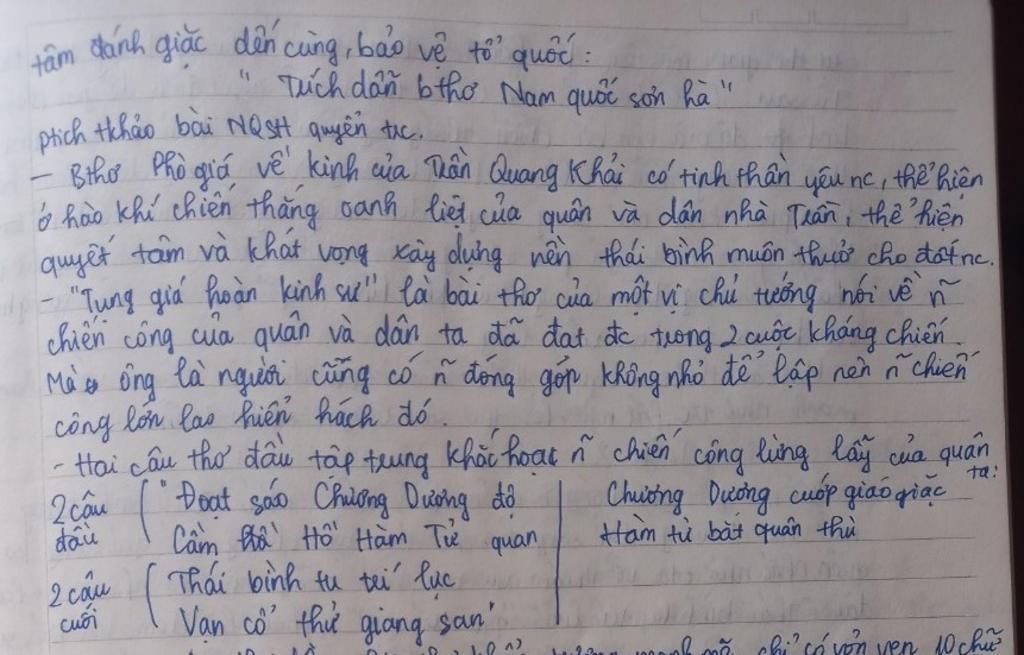 tâm đánh giặc đến cùng, bảo vệ tổ quốc:
" Trích dẫn bthơ Nam quốc sơn hà "
ptich tkhảo bài NQSH quyển trc.
- Bthơ Phò giá về kinh của Trần Quang Khải có tinh thần yêu nc, thể hiện
ở hào khí chiến thắng oanh liệt của quân và dân nhà Trần, thể hiện
quyết tâm và khát vọng xây dựng nền thái bình muôn thuở cho đất nc.
- "Tụng giá hoàn kinh sư" là bài thơ của một vị chủ tướng nói về ñ
chiến công của quân và dân ta đã đạt đc trong 2 cuộc kháng chiến.
Mà ông là người cũng có ñ đóng góp không nhỏ để lập nên ñ chiến
công lớn lao hiển hách đó.
- Hai câu thơ đầu tập trung khắc hoạ ñ chiến công lừng lẫy của quân ta:
2 câu đầu ( "Đoạt sáo Chương Dương độ | Chương Dương cướp giáo giặc
Cầm Hồ Hàm Tử quan | Hàm tử bắt quân thù
2 câu cuối ( Thái bình tu trí lực
Vạn cổ thử giang san"
mạnh mẽ, chỉ có vỏn vẹn 10 chữ